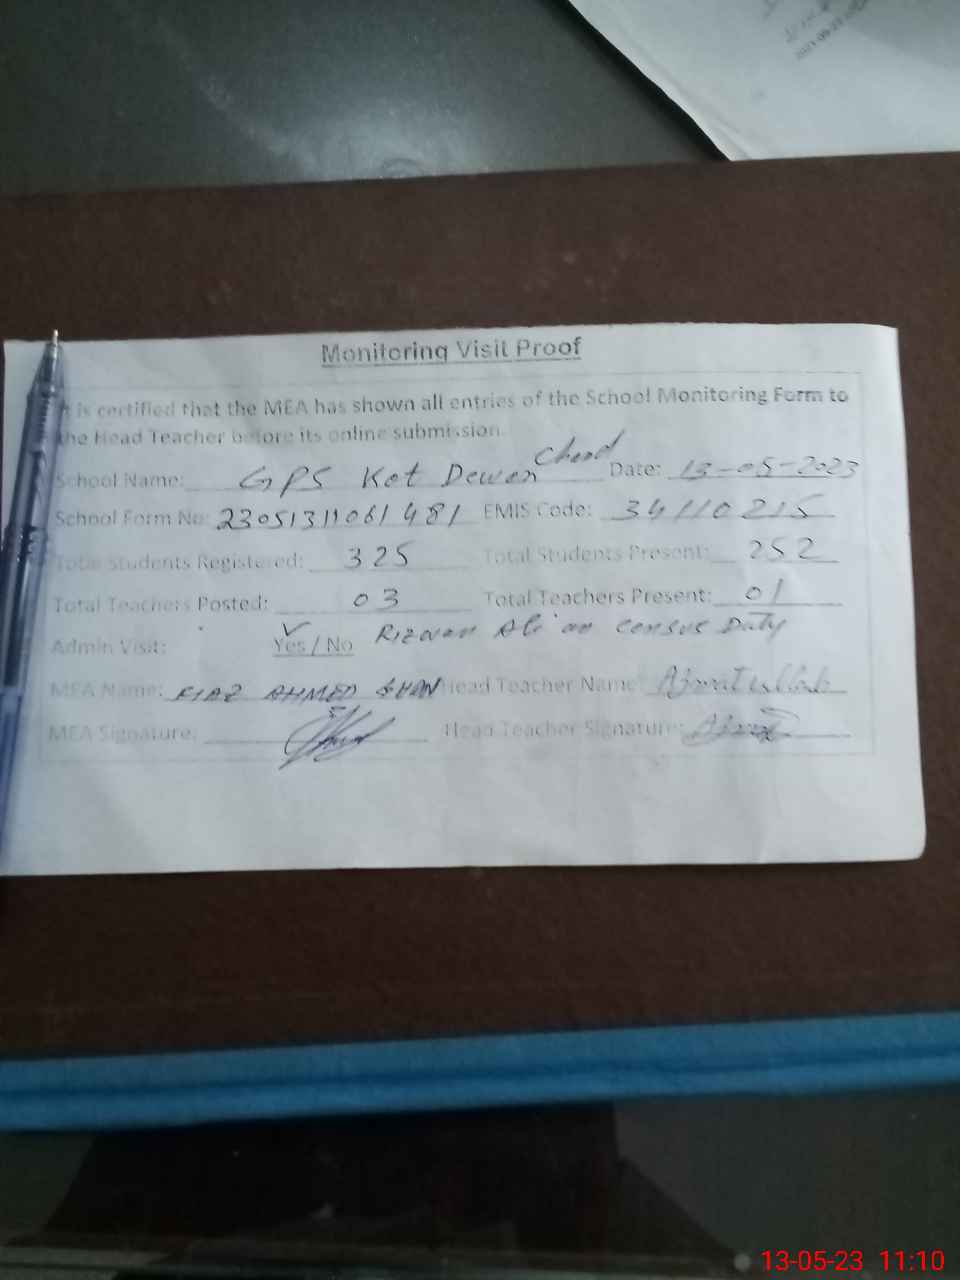 Monitoring Visit Proof
It is certified that the MEA has shown all entries of the School Monitoring Form to
the Head Teacher before its online submission.
School Name: GPS Kot Dewan Chand Date: 13-05-2023
School Form No: 23051311061481 EMIS Code: 34110215
Total Students Registered: 325 Total Students Present: 252
Total Teachers Posted: 03 Total Teachers Present: 01
Admin Visit: Yes / No Rizwan Ali on census Duty
MEA Name: AHMED Head Teacher Name:
MEA Signature: Head Teacher Signature:
13-05-23 11:10